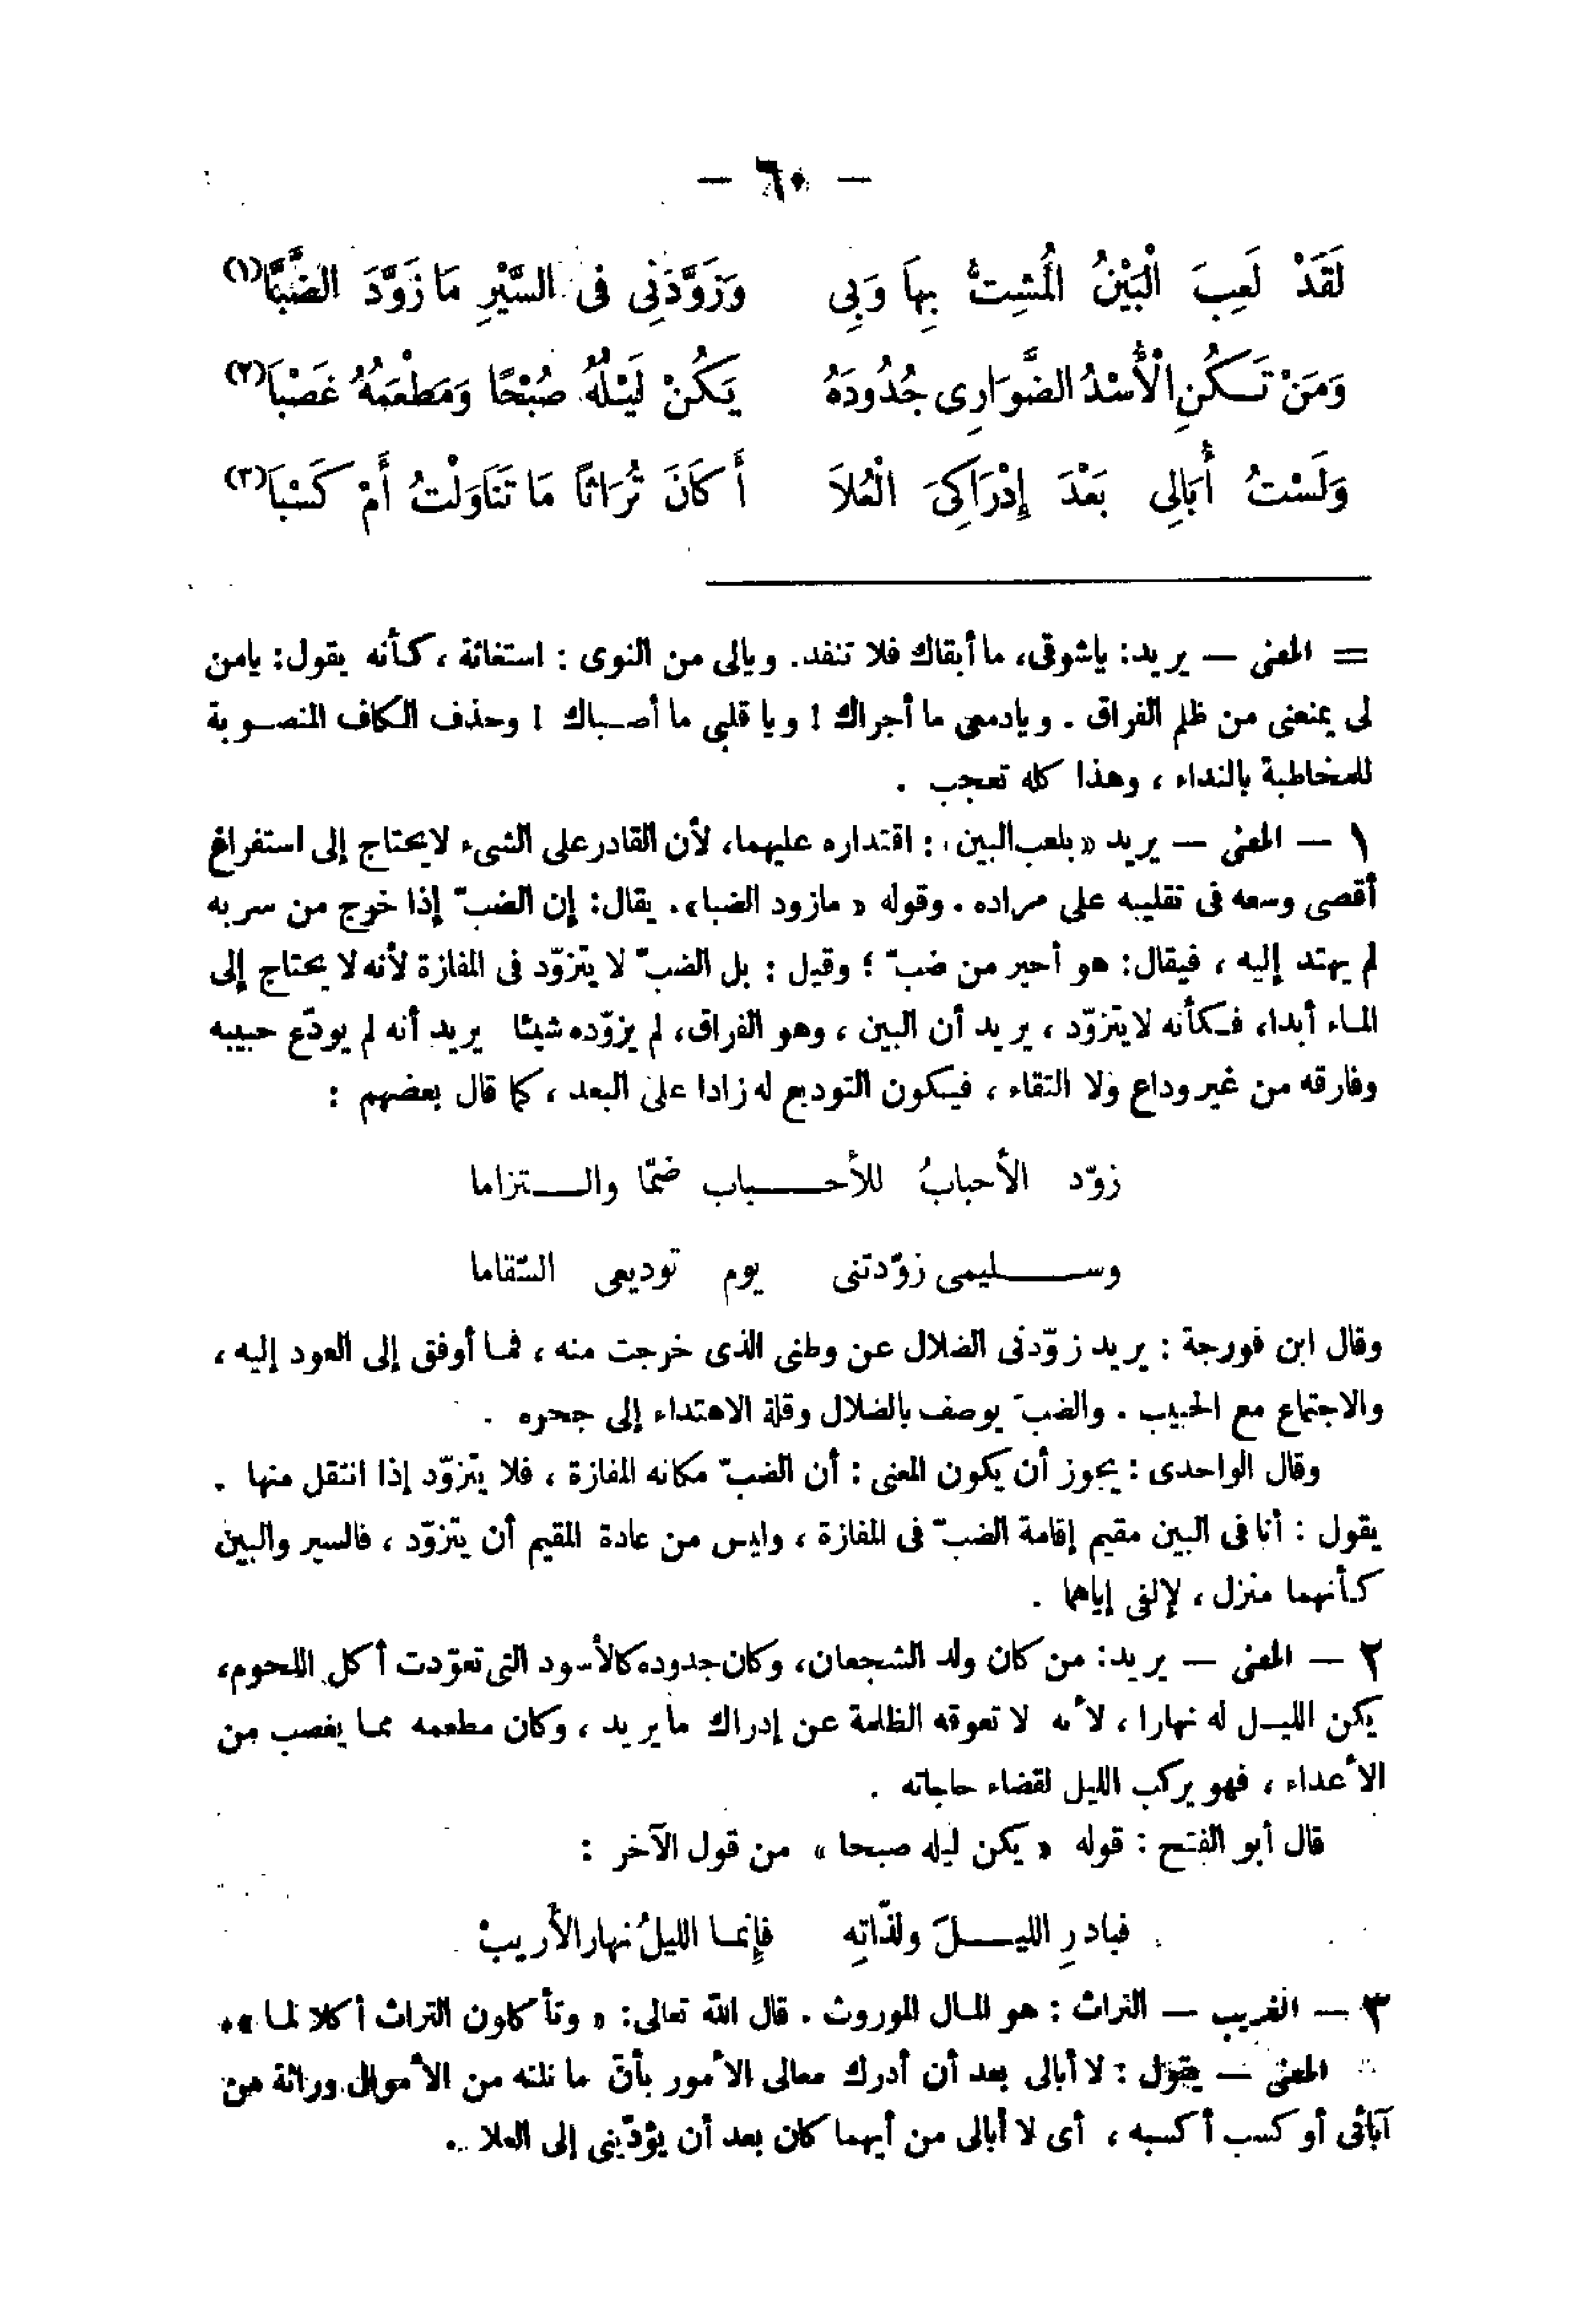 — ٦٠ —
لَقَدْ لَعِبَ الْبَيْنُ الْمُشِتُّ بِهَا وَبِى وَزَوَّدَنِى فى السَّيْرِ مَا زَوَّدَ الضَّبَّا(١)
وَمَنْ تَكُنِ الْأُسْدُ الضَّوَارِى جُدُودَهُ يَكُنْ لَيْلُهُ صُبْحًا وَمَطْعَمُهُ غَصْبَا(٢)
وَلَسْتُ أُبَالِى بَعْدَ إِدْرَاكِىَ الْعُلَا أَ كَانَ تُرَاثًا مَا تَنَاوَلْتُ أَمْ كَسْبَا(٣)
= المعنى — يريد: ياشوقى، ما أبقاك فلا تنفد. ويالى من النوى : استغاثة ، كأنه يقول: يامن
لى يمنعنى من ظلم الفراق . ويادمعى ما أجراك ! ويا قلبى ما أصباك ! وحذف الكاف المنصوبة
للمخاطبة بالنداء ، وهذا كله تعجب .
١ — المعنى — يريد « بلعب البين » : اقتداره عليهما، لأن القادر على الشىء لايحتاج إلى استفراغ
أقصى وسعه فى تقليبه على مراده . وقوله « مازود الضبا» . يقال: إن الضبّ إذا خرج من سربه
لم يهتد إليه ، فيقال: هو أحير من ضبّ ؛ وقيل : بل الضبّ لا يتزوّد فى المفازة لأنه لا يحتاج إلى
الماء أبدا، فكأنه لايتزوّد ، يريد أن البين ، وهو الفراق، لم يزوّده شيئا يريد أنه لم يودّع حبيبه
وفارقه من غير وداع ولا التقاء ، فيكون التوديع له زادا على البعد ، كما قال بعضهم :
زوّد الأحبابُ للأحباب ضمّا والتزاما
وسليمى زوّدتنى يوم توديعى السّقاما
وقال ابن فورجة : يريد زوّدنى الضلال عن وطنى الذى خرجت منه ، فما أوفق إلى العود إليه ،
والاجتماع مع الحبيب . والضبّ يوصف بالضلال وقلة الاهتداء إلى جحره .
وقال الواحدى : يجوز أن يكون المعنى : أن الضبّ مكانه المفازة ، فلا يتزوّد إذا انتقل منها .
يقول : أنا فى البين مقيم إقامة الضبّ فى المفازة ، وليس من عادة المقيم أن يتزوّد ، فالسير والبين
كأنهما منزل ، لإلفى إياهما .
٢ — المعنى — يريد: من كان ولد الشجعان، وكان جدوده كالأسود التى تعوّدت أكل اللحوم،
يكن الليل له نهارا ، لأنه لا تعوقه الظلمة عن إدراك ما يريد ، وكان مطعمه مما يغصب من
الأعداء ، فهو يركب الليل لقضاء حاجاته .
قال أبو الفتح : قوله « يكن ليله صبحا » من قول الآخر :
فبادرِ الليلَ ولذّاتِه فإنما الليلُ نهار الأريبْ
٣ — الغريب — التراث : هو المال الموروث . قال الله تعالى: « وتأكلون التراث أكلا لما » .
المعنى — يقول : لا أبالى بعد أن أدرك معالى الأمور بأن ما نلته من الأموال وراثة من
آبائى أو كسب أكسبه ، أى لا أبالى من أيهما كان بعد أن يؤدّينى إلى العلا .